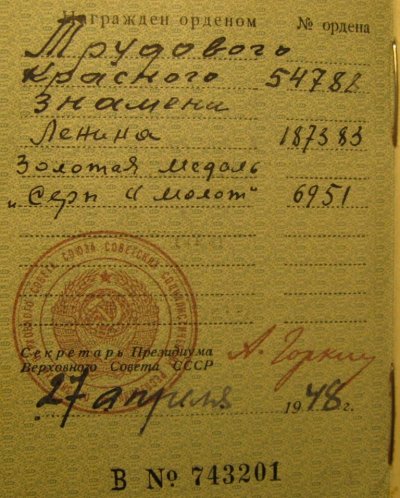 Награжден орденом № ордена
Трудового
Красного 54788
Знамени
Ленина 187383
Золотая медаль
„Серп и молот“ 6951
Секретарь Президиума
Верховного Совета СССР
А. Горкин
27 апреля 1948 г.
В № 743201